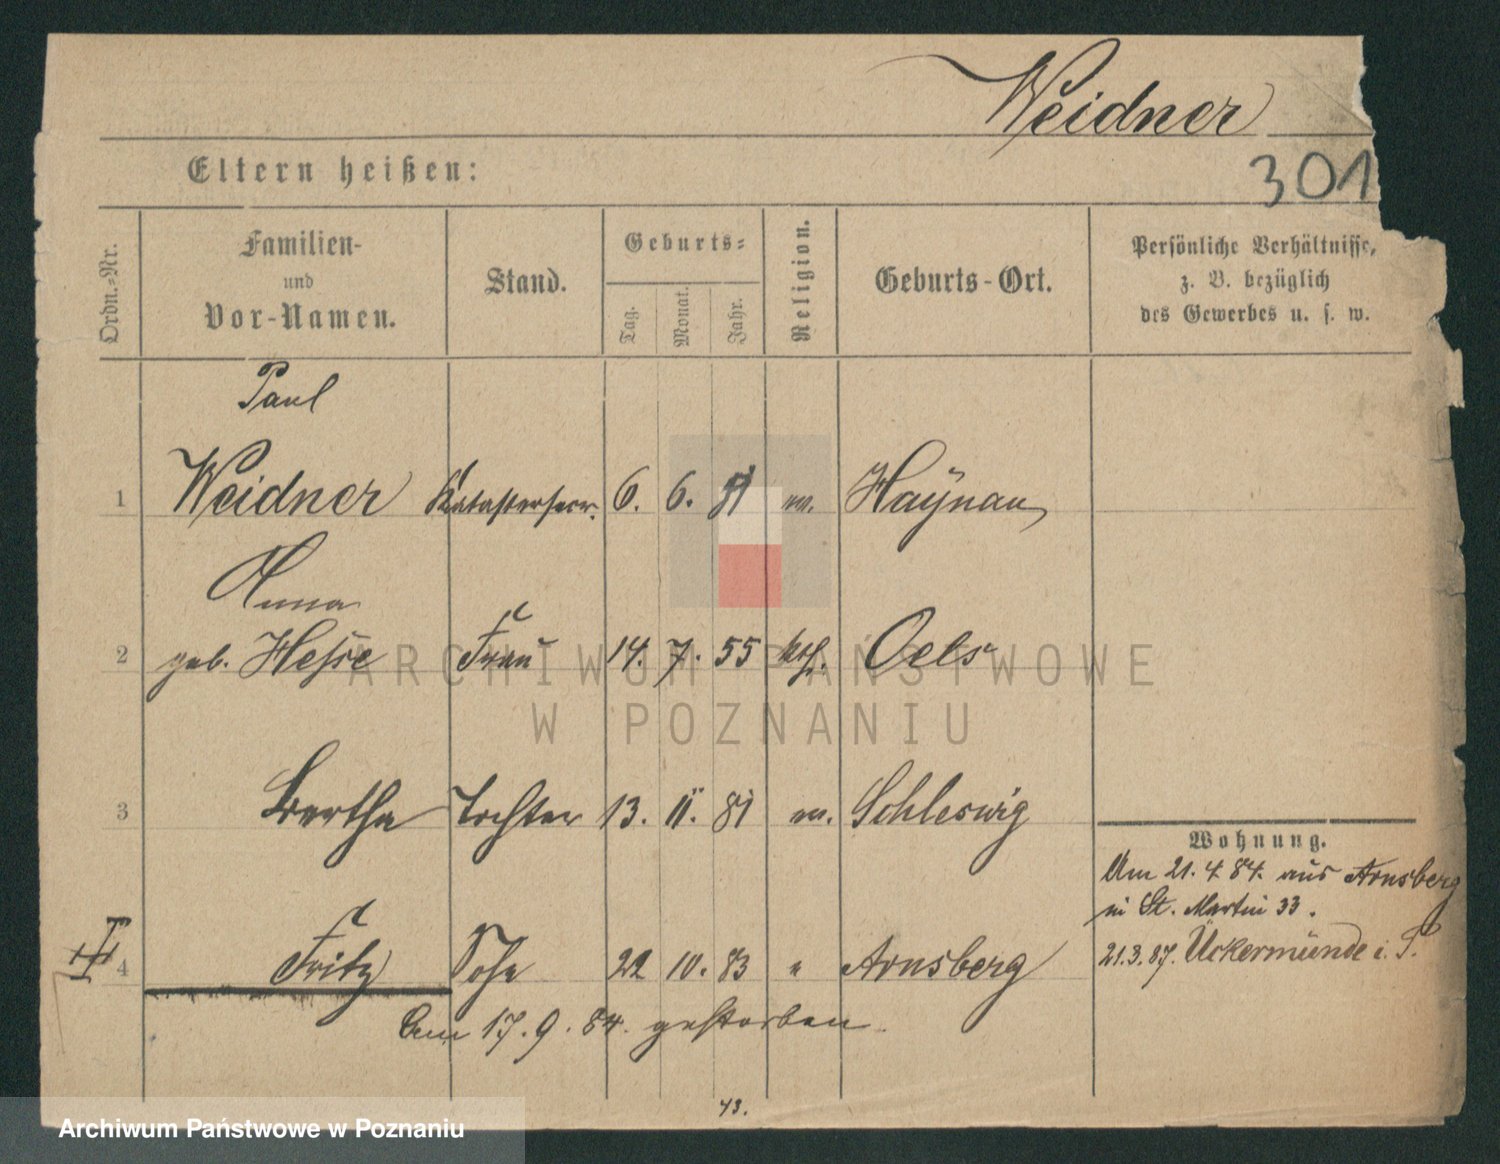 Weidner
301
Eltern heißen:
Ordn.-Nr.
Familien-
und
Vor-Namen.
Stand.
Geburts-
Tag.
Monat.
Jahr.
Religion.
Geburts-Ort.
Persönliche Verhältnisse,
z. B. bezüglich
des Gewerbes u. s. w.
Paul
1 Weidner Katastersecr. 6. 6. m. Haynau
Anna
2 geb. Hesse Frau 14. 7. 55 Oels
3 Bertha Tochter 13. 11. 81 m. Schleswig
Wohnung.
Am 21. 4 84. aus Arnsberg
in St. Martin 33.
21.3.87. Uckermünde i. P.
4 Fritz Sohn 22 10. 83 " Arnsberg
Am 17. 9. 84. gestorben
43.
ARCHIWUM PAŃSTWOWE
W POZNANIU
Archiwum Państwowe w Poznaniu